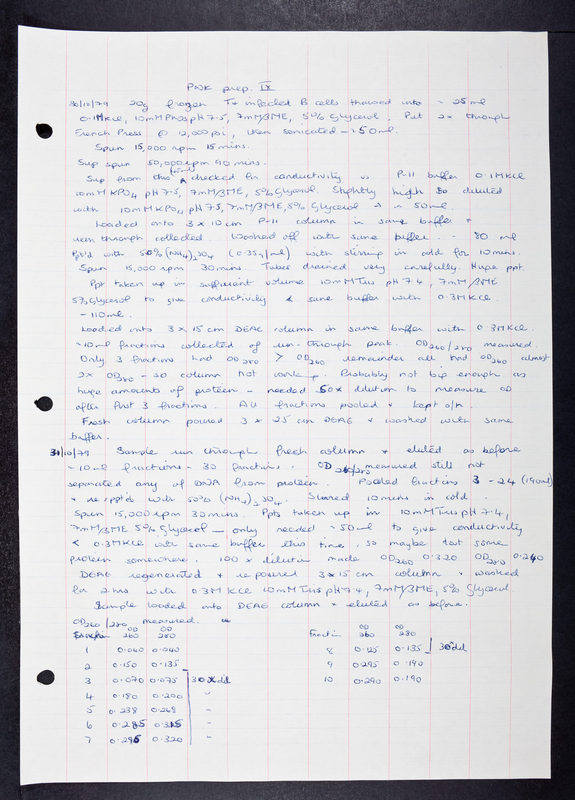 PNK prep. IX
30/10/79 20g frozen T4 infected B cells thawed into ~ 25 ml
0.1M KCl, 10mM Phos pH 7.5, 7mM βME, 5% Glycerol. Put 2x through
French Press @ 12,000 psi, then sonicated ~ 50ml.
Spun 15,000 rpm 15 mins.
Sup spun 50,000 rpm 90 mins.
Sup from this checked for conductivity vs P-11 buffer 0.1M KCl
10mM KPO4 pH 7.5, 7mM βME, 5% Glycerol. Slightly high so diluted
with 10mM KPO4 pH 7.5, 7mM βME, 5% Glycerol → ~ 50ml.
Loaded onto 3 x 10 cm P-11 column in same buffer +
run through collected. Washed off with same buffer. ~ 80 ml
Ppt'd with 50% (NH4)2SO4 (0.35g/ml) with stirring in cold for 10 mins.
Spun 15,000 rpm 30 mins. Tubes drained very carefully. Huge ppt.
Ppt taken up in sufficient volume 10mM Tris pH 7.4, 7mM βME
5% Glycerol to give conductivity < same buffer with 0.3M KCl.
~ 110 ml.
Loaded onto 3 x 15 cm DEAE column in same buffer with 0.3M KCl.
~10 ml fractions collected of run-through peak. OD260/280 measured.
Only 3 fractions had OD280 > OD260 remainder all had OD260 almost
2x OD280 - so column not working. Probably not big enough as
huge amounts of protein - needed 50x dilution to measure OD
after first 3 fractions. All fractions pooled + kept o/n.
Fresh column poured 3 x 25 cm DEAE + washed with same
buffer.
31/10/79 Sample run through fresh column + eluted as before
~10 ml fractions - 30 fractions. OD 260/280 measured still not
separated any of DNA from protein. Pooled fractions 3 - 24 (190ml)
+ re-ppt'd with 50% (NH4)2SO4. Stirred 10 mins in cold.
Spun 15,000 rpm 30 mins. Ppts taken up in 10mM Tris pH 7.4,
7mM βME 5% Glycerol — only needed ~50 ml to give conductivity
< 0.3M KCl with same buffer this time. So maybe lost some
protein somewhere. 100 x dilution made OD260 0.320 OD280 0.240
DEAE regenerated + re poured 3 x 15 cm column + washed
for 2 hrs with 0.3M KCl 10mM Tris pH 7.4, 7mM βME, 5% Glycerol
Sample loaded onto DEAE column + eluted as before.
OD260/280 measured.
Fraction OD 260 OD 280 Fraction OD 260 OD 280
1 0.040 0.040 8 0.125 0.135 30x dil
2 0.150 0.135 9 0.295 0.190
3 0.070 0.075 30x dil 10 0.290 0.190
4 0.180 0.200 "
5 0.238 0.268 "
6 0.285 0.315 "
7 0.295 0.320 "